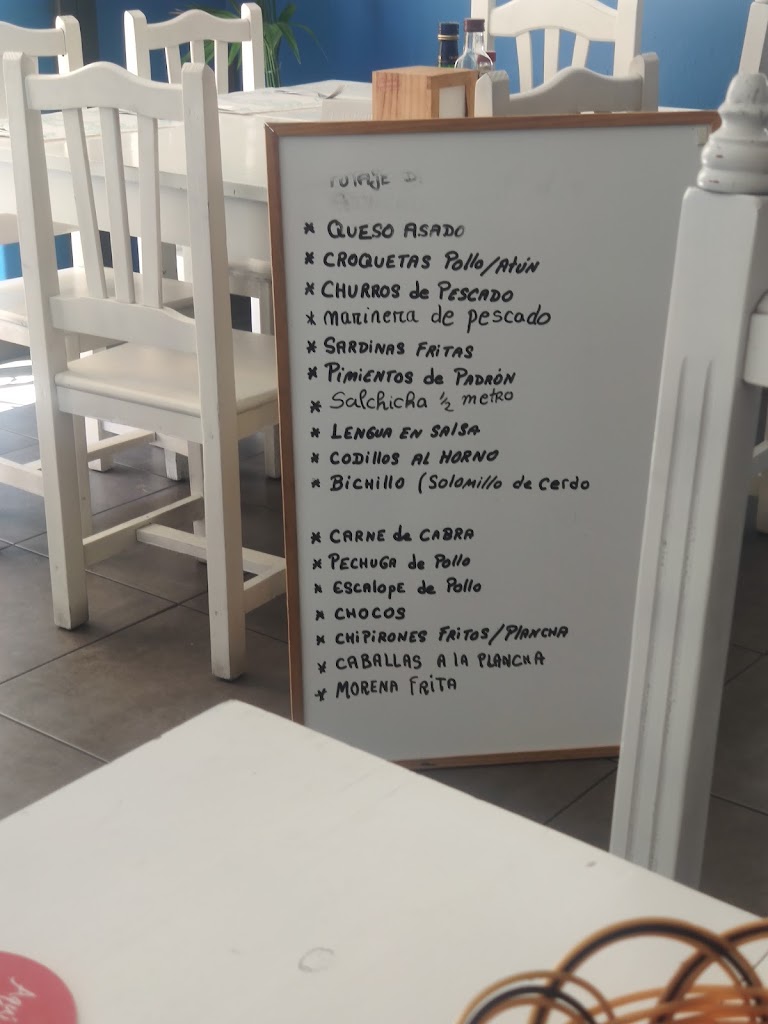 POTAJE D
* QUESO ASADO
* CROQUETAS Pollo/Atún
* CHURROS de PESCADO
* marinera de pescado
* SARDINAS FRITAS
* PIMIENTOS de PADRÓN
* Salchicha ½ metro
* LENGUA EN SALSA
* CODILLOS AL HORNO
* BICHILLO (Solomillo de cerdo
* CARNE de CABRA
* PECHUGA de Pollo
* ESCALOPE de Pollo
* CHOCOS
* CHIPIRONES FRITOS/PLANCHA
* CABALLAS A la PLANCHA
* MORENA FRITA
Aquí